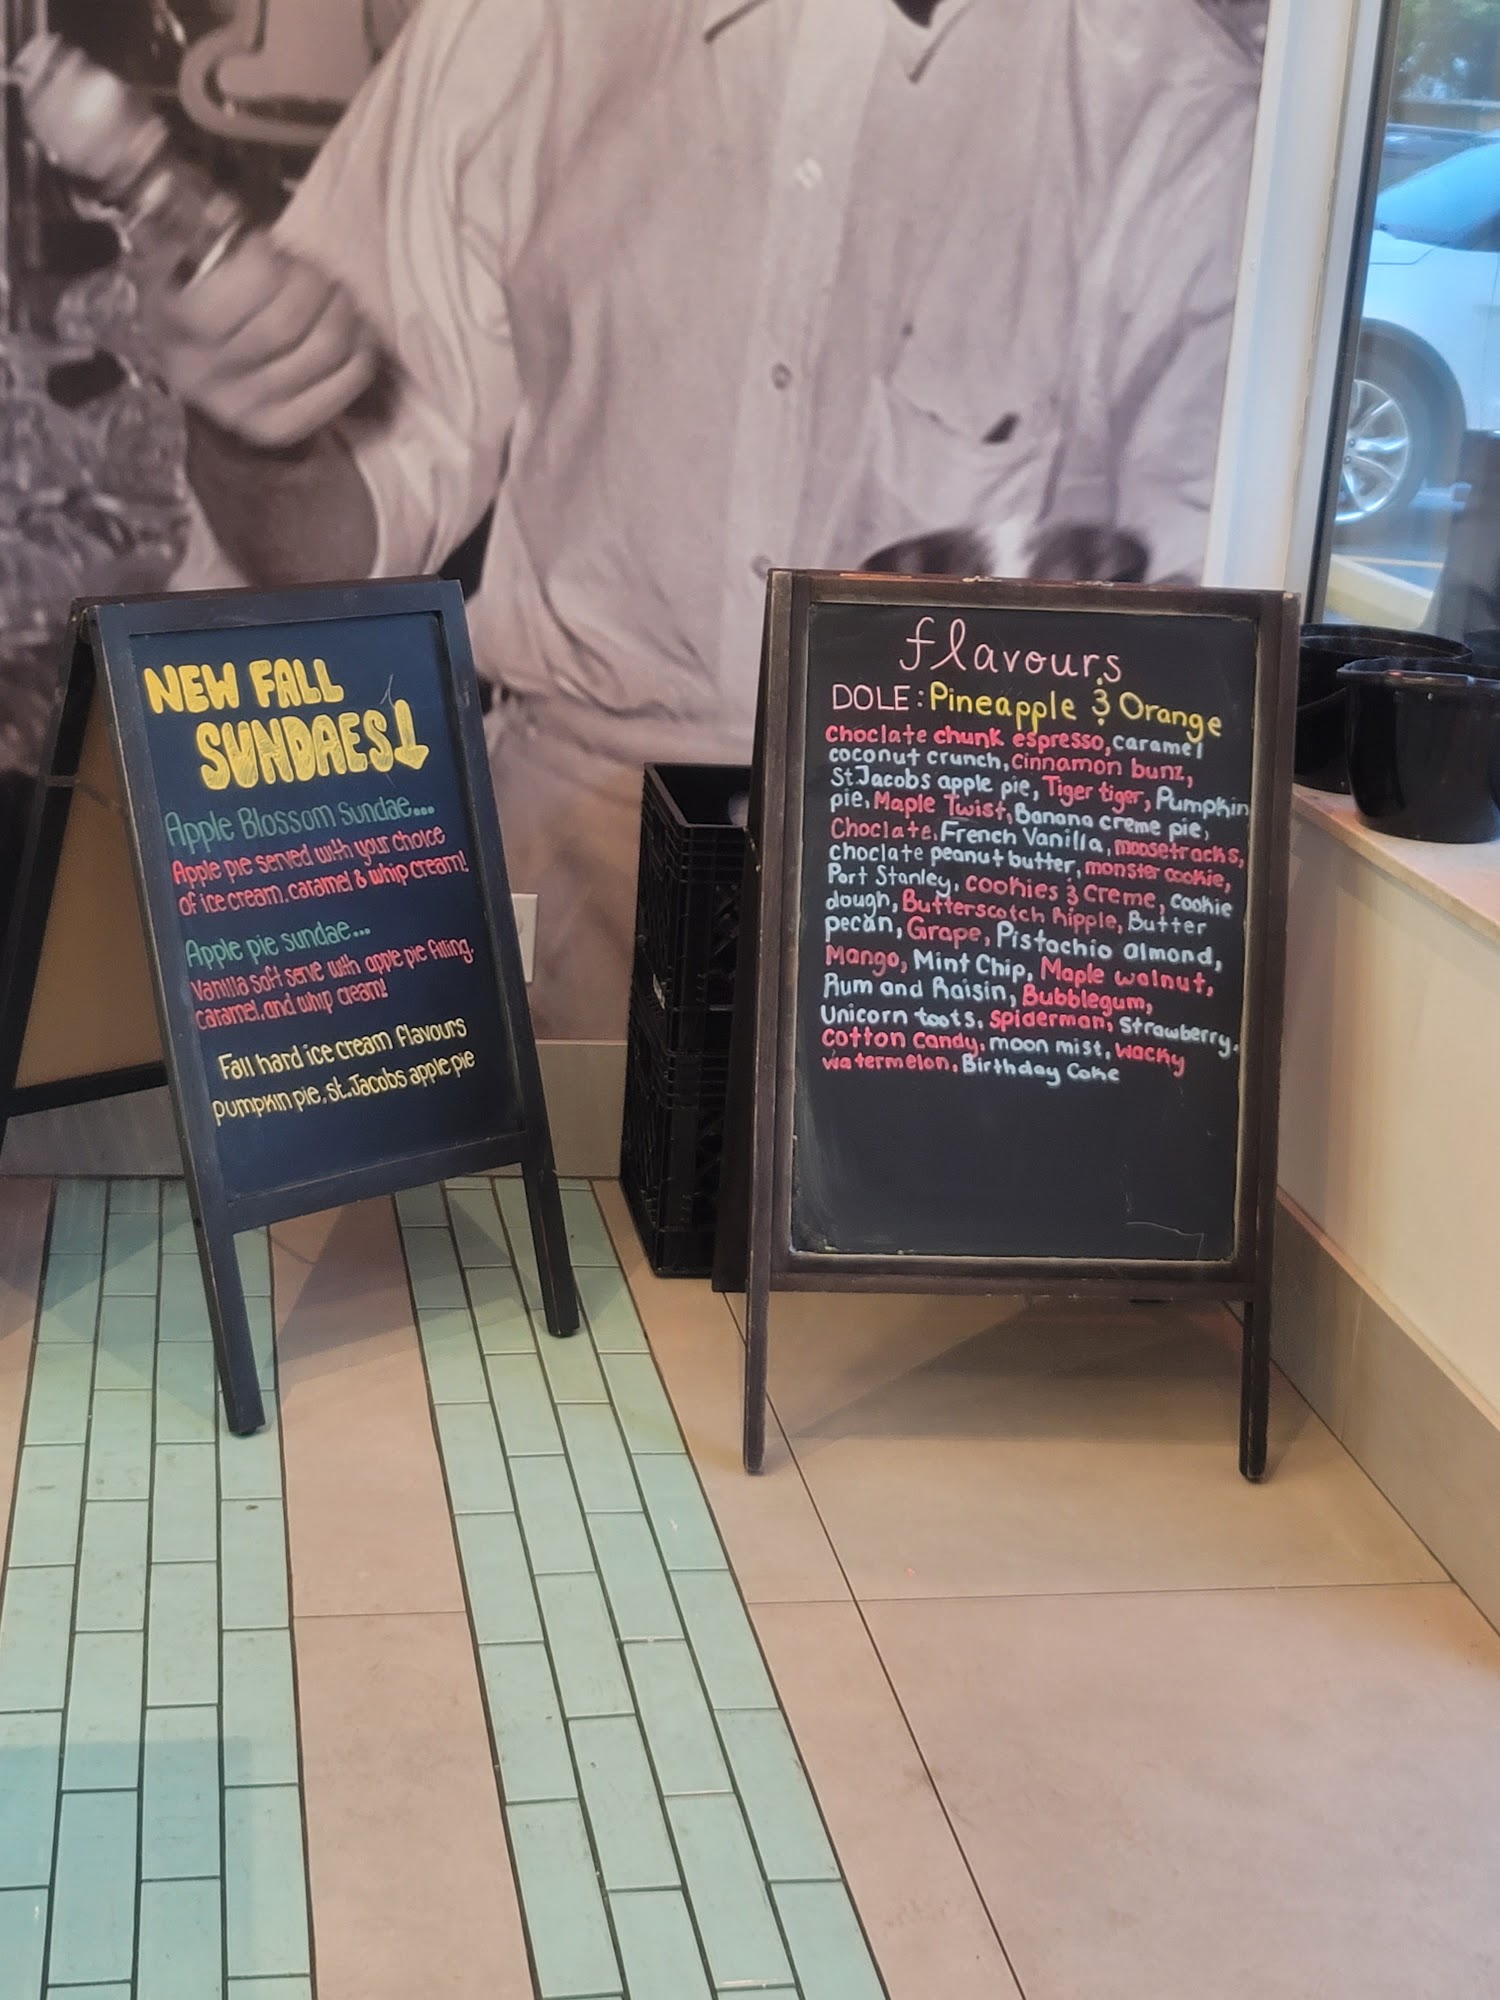 NEW FALL
SUNDAES
Apple Blossom sundae...
Apple pie served with your choice
of ice cream, caramel & whip cream!
Apple pie sundae...
Vanilla soft serve with apple pie filling,
caramel, and whip cream!
Fall hard ice cream flavours
pumpkin pie, st.Jacobs apple pie
flavours
DOLE: Pineapple & Orange
choclate chunk espresso, caramel
coconut crunch, cinnamon bunz,
St.Jacobs apple pie, Tiger tiger, Pumpkin
pie, Maple Twist, Banana creme pie,
Choclate, French Vanilla, moosetracks,
choclate peanut butter, monster cookie,
Port Stanley, cookies & Creme, cookie
dough, Butterscotch Ripple, Butter
pecan, Grape, Pistachio almond,
Mango, Mint Chip, Maple walnut,
Rum and Raisin, Bubblegum,
Unicorn toots, spiderman, strawberry,
cotton candy, moon mist, wacky
watermelon, Birthday Cake